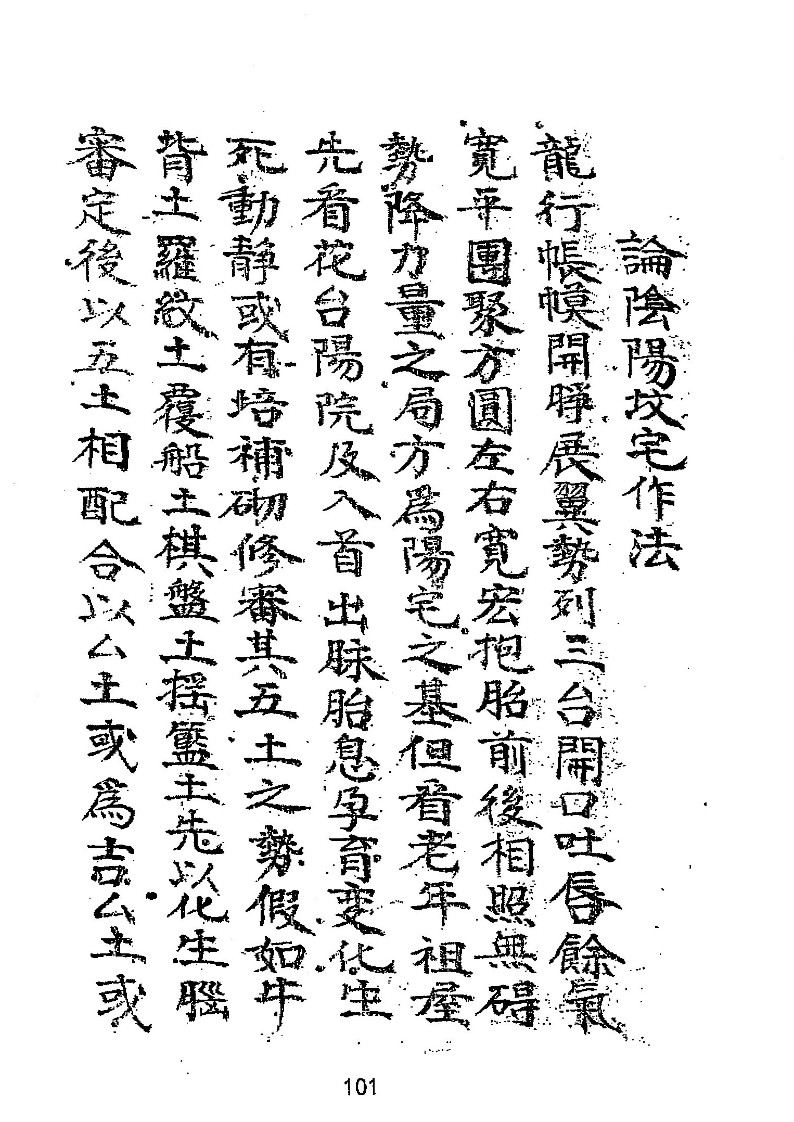 論陰陽坟宅作法
龍行帳幙開睜展翼勢列三台開口吐唇餘氣
寛平團聚方圓左右寛宏抱胎前後相照無碍
勢降力量之局方為陽宅之基但看老年祖屋
先看花台陽院及入首出脉胎息孕育变化生
死動静或有培補砌修審其五土之勢假如牛
背土羅紋土覆船土棋盤土摇籃土先以化生腦
審定後以五土相配合以厶土或為吉厶土或
101